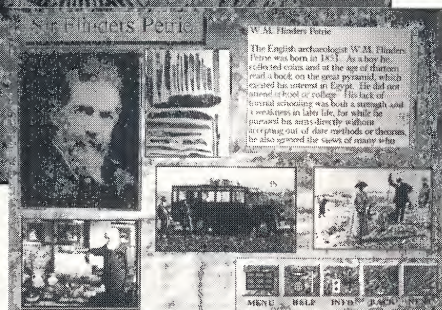 Sir Flinders Petrie
W.M. Flinders Petrie
The English archaeologist W.M. Flinders
Petrie was born in 1853. As a boy he
collected coins and at the age of thirteen
read a book on the great pyramid, which
excited his interest in Egypt. He did not
attend school or college. His lack of
formal schooling was both a strength and
a weakness in later life, for while he
pursued his aims directly without
accepting out of date methods or theories,
he also ignored the views of many who
MENU HELP INFO BACK NEXT